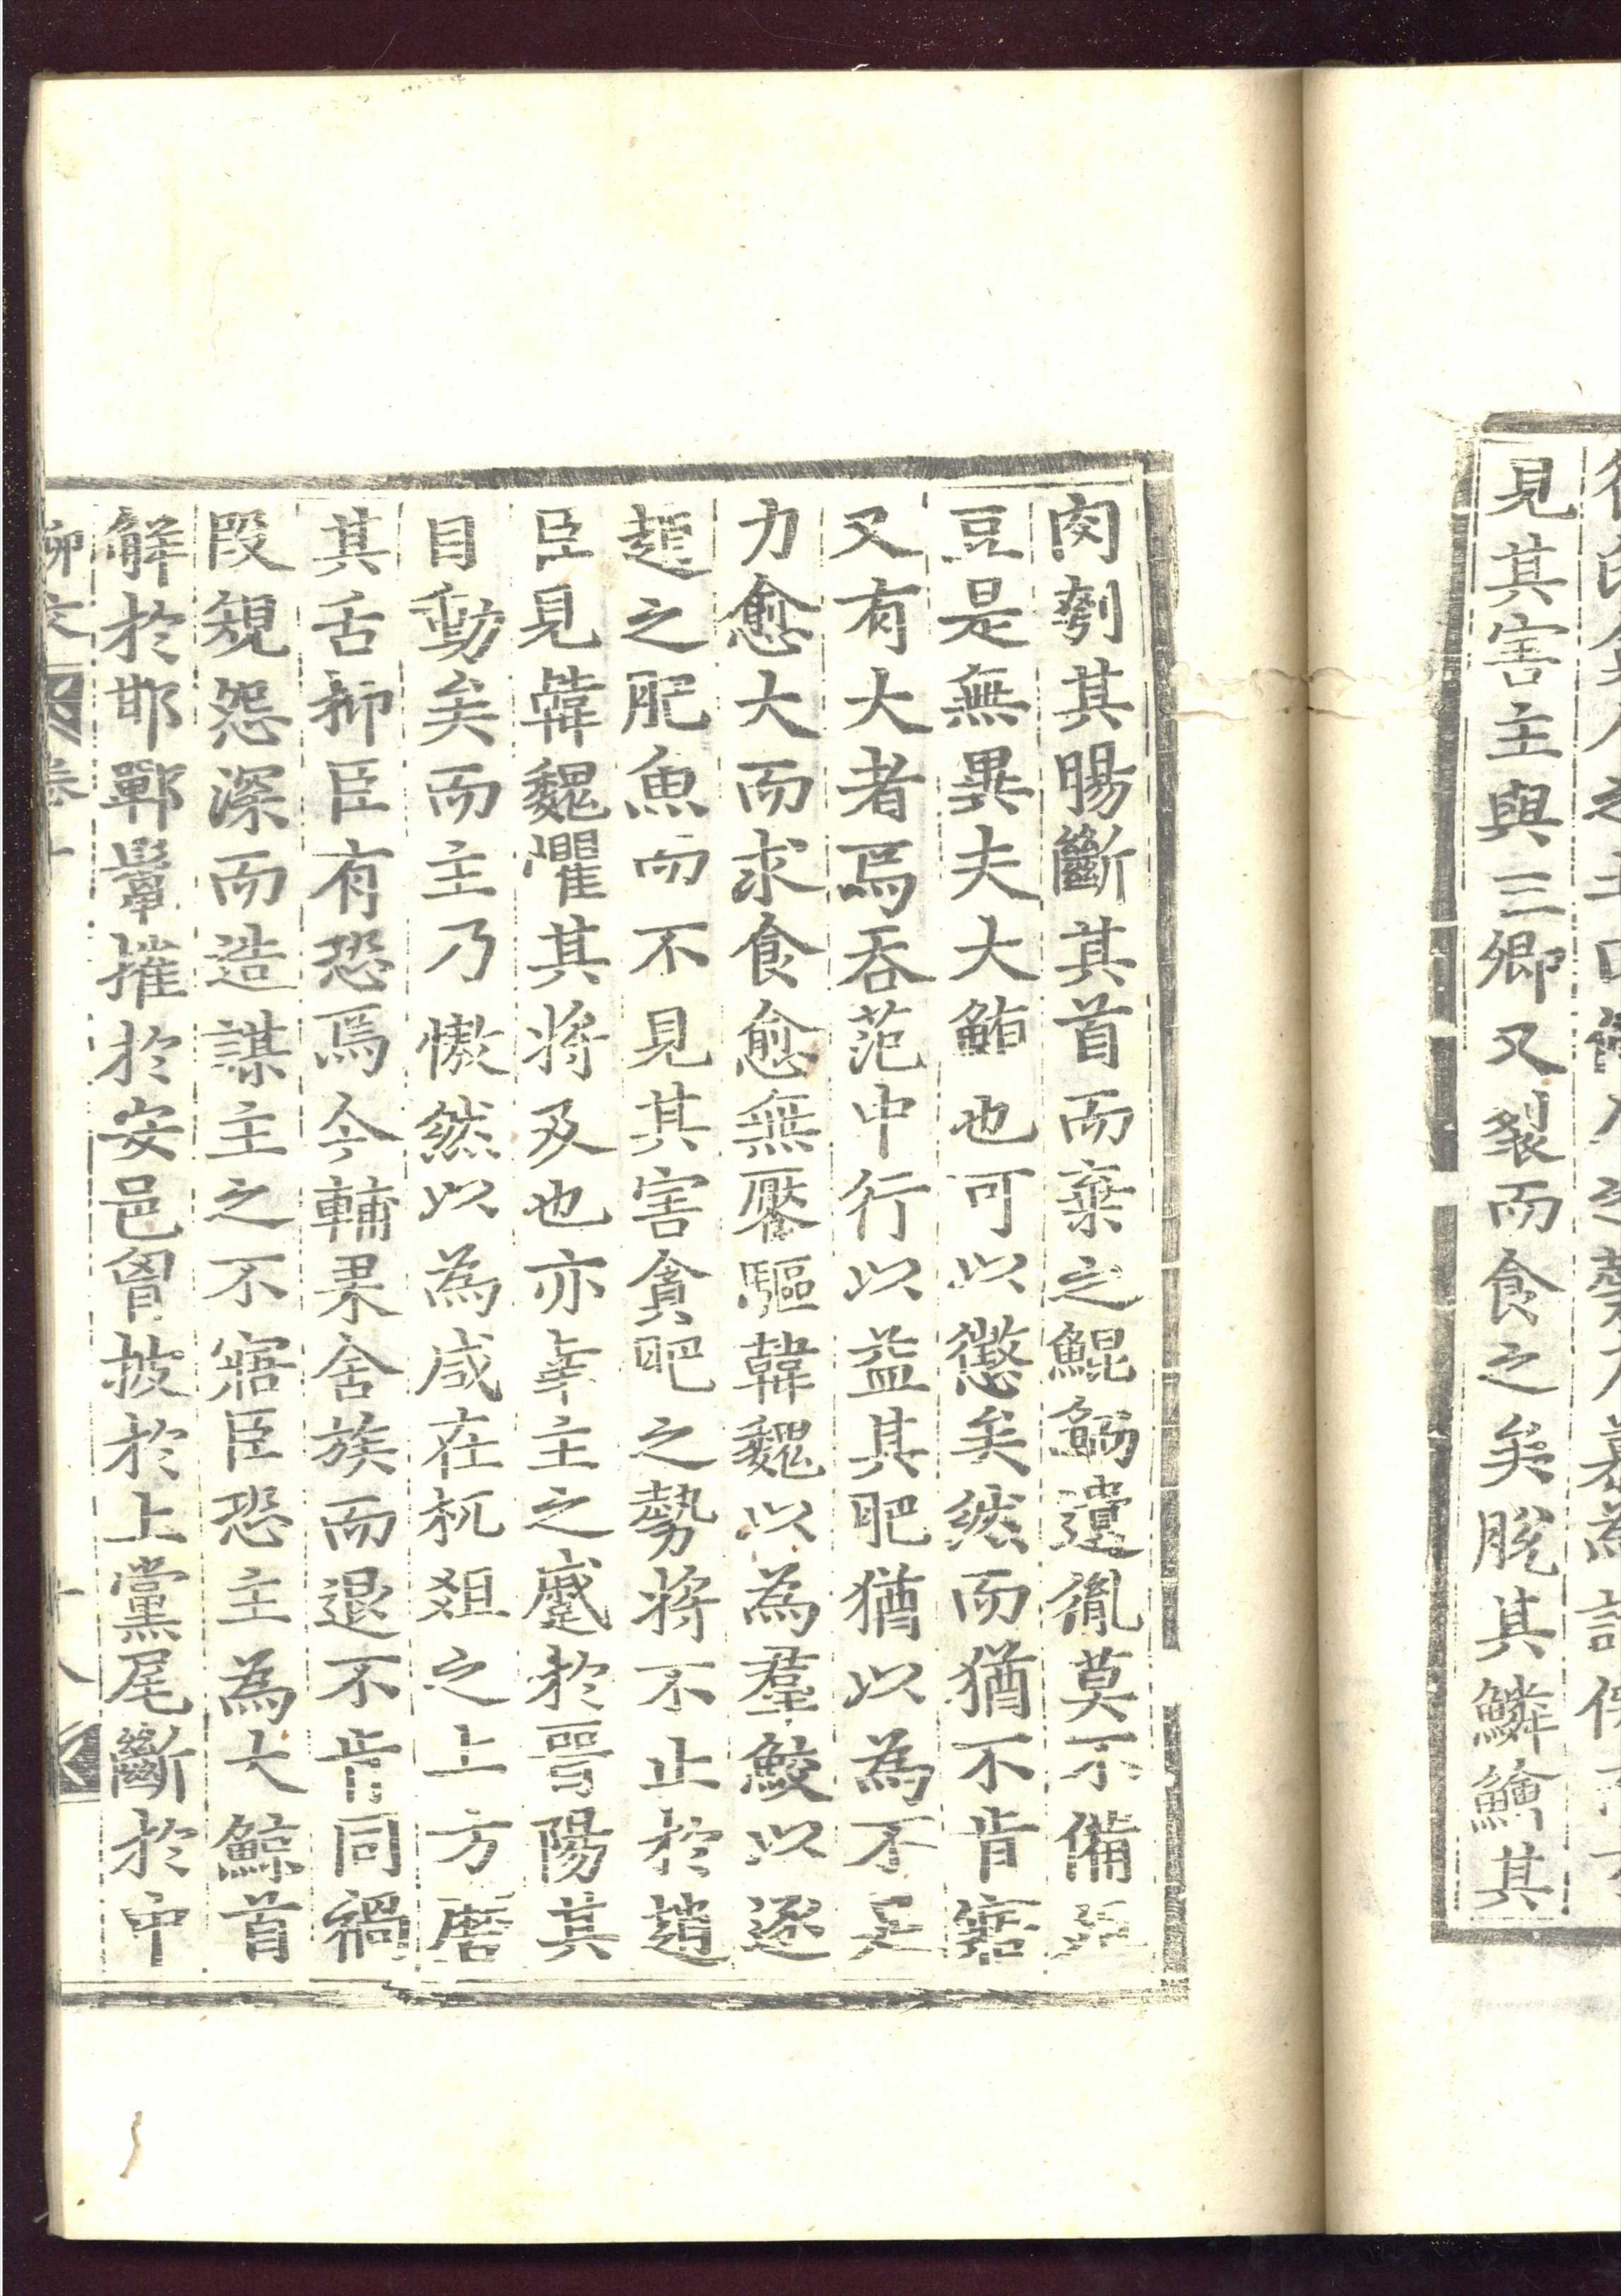 見其害主與三卿又裂而食之矣脫其鱗鱠其
肉刳其腸斷其首而棄之鯤鮞遺胤莫不備俎
豆是無異夫大鮪也可以懲矣然而猶不肯寤
又有大者焉吞范中行以益其肥猶以為不足
力愈大而求食愈無饜驅韓魏以為羣鮫以逐
趙之肥魚而不見其害貪肥之勢將不止於趙
臣見韓魏懼其將及也亦幸主之蹙於晉陽其
目動矣而主乃慠然以為咸在机俎之上方磨
其舌抑臣有恐焉今輔果舍族而退不肯同禍
段規怨深而造謀主之不寤臣恐主為大鯨首
解於邯鄲鬣摧於安邑胷披於上黨尾斷於中
柳文 卷十